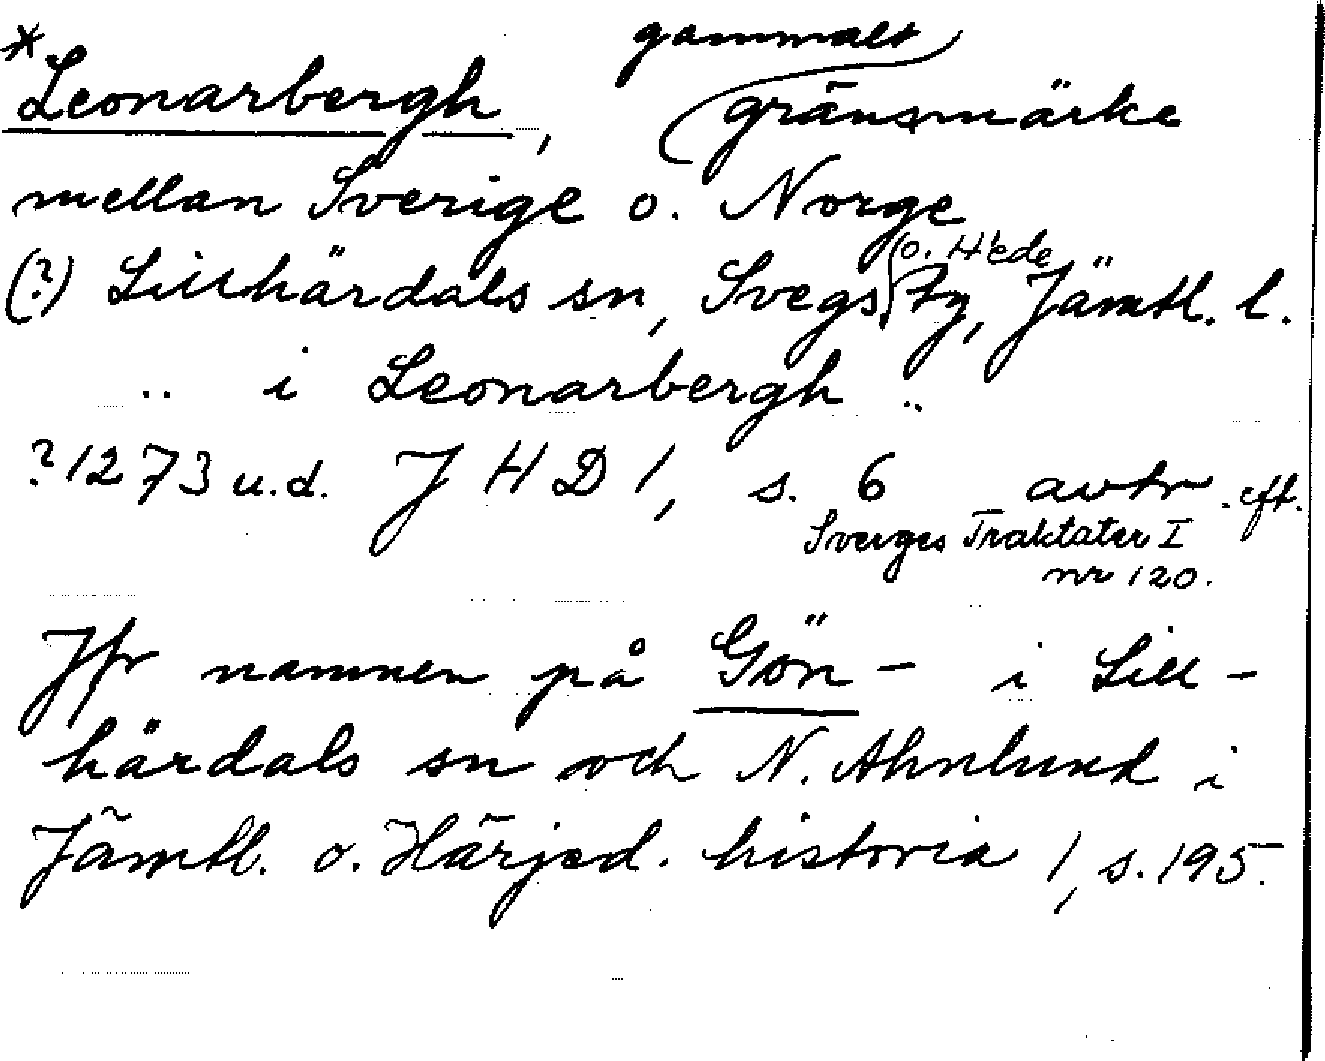 * Leonarbergh, gammalt gränsmärke
mellan Sverige o. Norge
(?) Lillhärdals sn, Svegs o. Hede tg, Jämtl. l.
" i Leonarbergh "
? 1273 u.d. J H D 1, s. 6 avtr. eft.
Sverges Traktater I
nr 120.
Jfr namnen på Gön- i Lill-
härdals sn och N. Ahnlund i
Jämtl. o. Härjed. historia 1, s. 195.